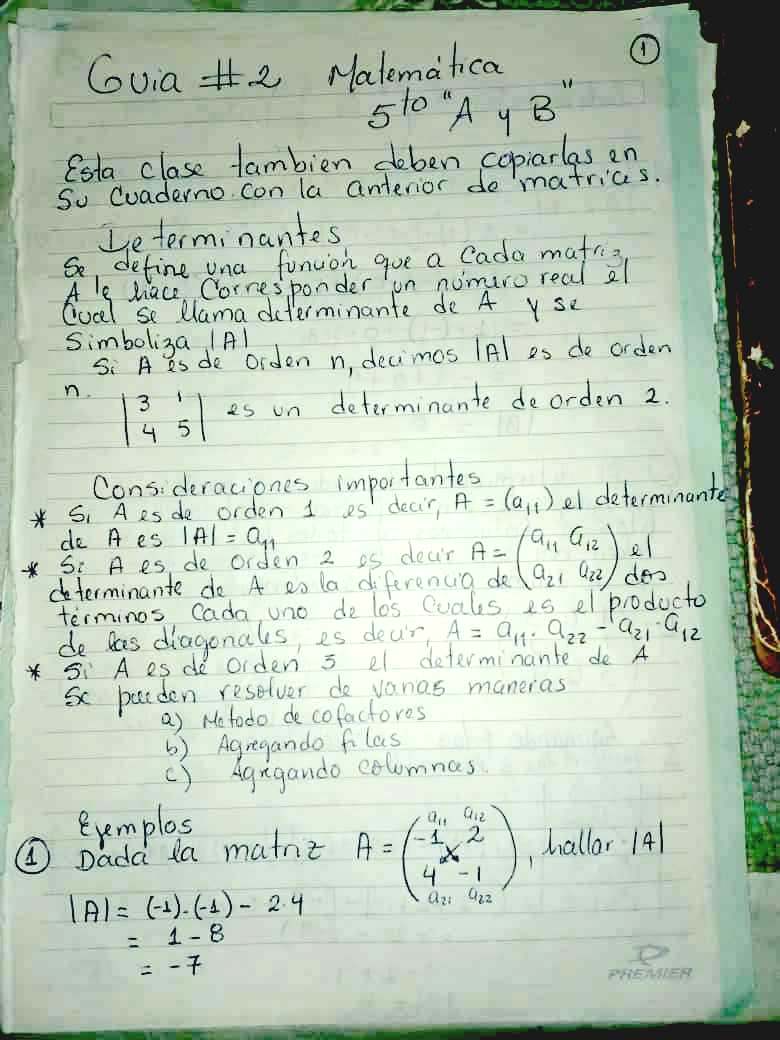 1
Guia #2 Matemática
5to "A y B"
Esta clase tambien deben copiarlas en
Su Cuaderno con la anterior de matrices.
Determinantes
Se define una función que a Cada matriz
A le hace Corresponder un número real el
Cual se llama determinante de A y se
Simboliza |A|
Si A es de orden n, decimos |A| es de orden
n.
|3 1|
|4 5| es un determinante de orden 2.
Consideraciones importantes
* Si A es de orden 1 es decir, A = (a11) el determinante
de A es |A| = a11
* Si A es de orden 2 es decir A = (a11 a12
a21 a22) el
determinante de A es la diferencia de dos
términos Cada uno de los Cuales es el producto
de las diagonales, es decir, A = a11 . a22 - a21 . a12
* Si A es de orden 3 el determinante de A
Se pueden resolver de varias maneras
a) Metodo de cofactores
b) Agregando filas
c) Agregando columnas.
Ejemplos
1 Dada la matriz A = (-1 2
4 -1), hallar |A|
a11 a12
a21 a22
|A| = (-1).(-1) - 2.4
= 1 - 8
= -7
PREMIER